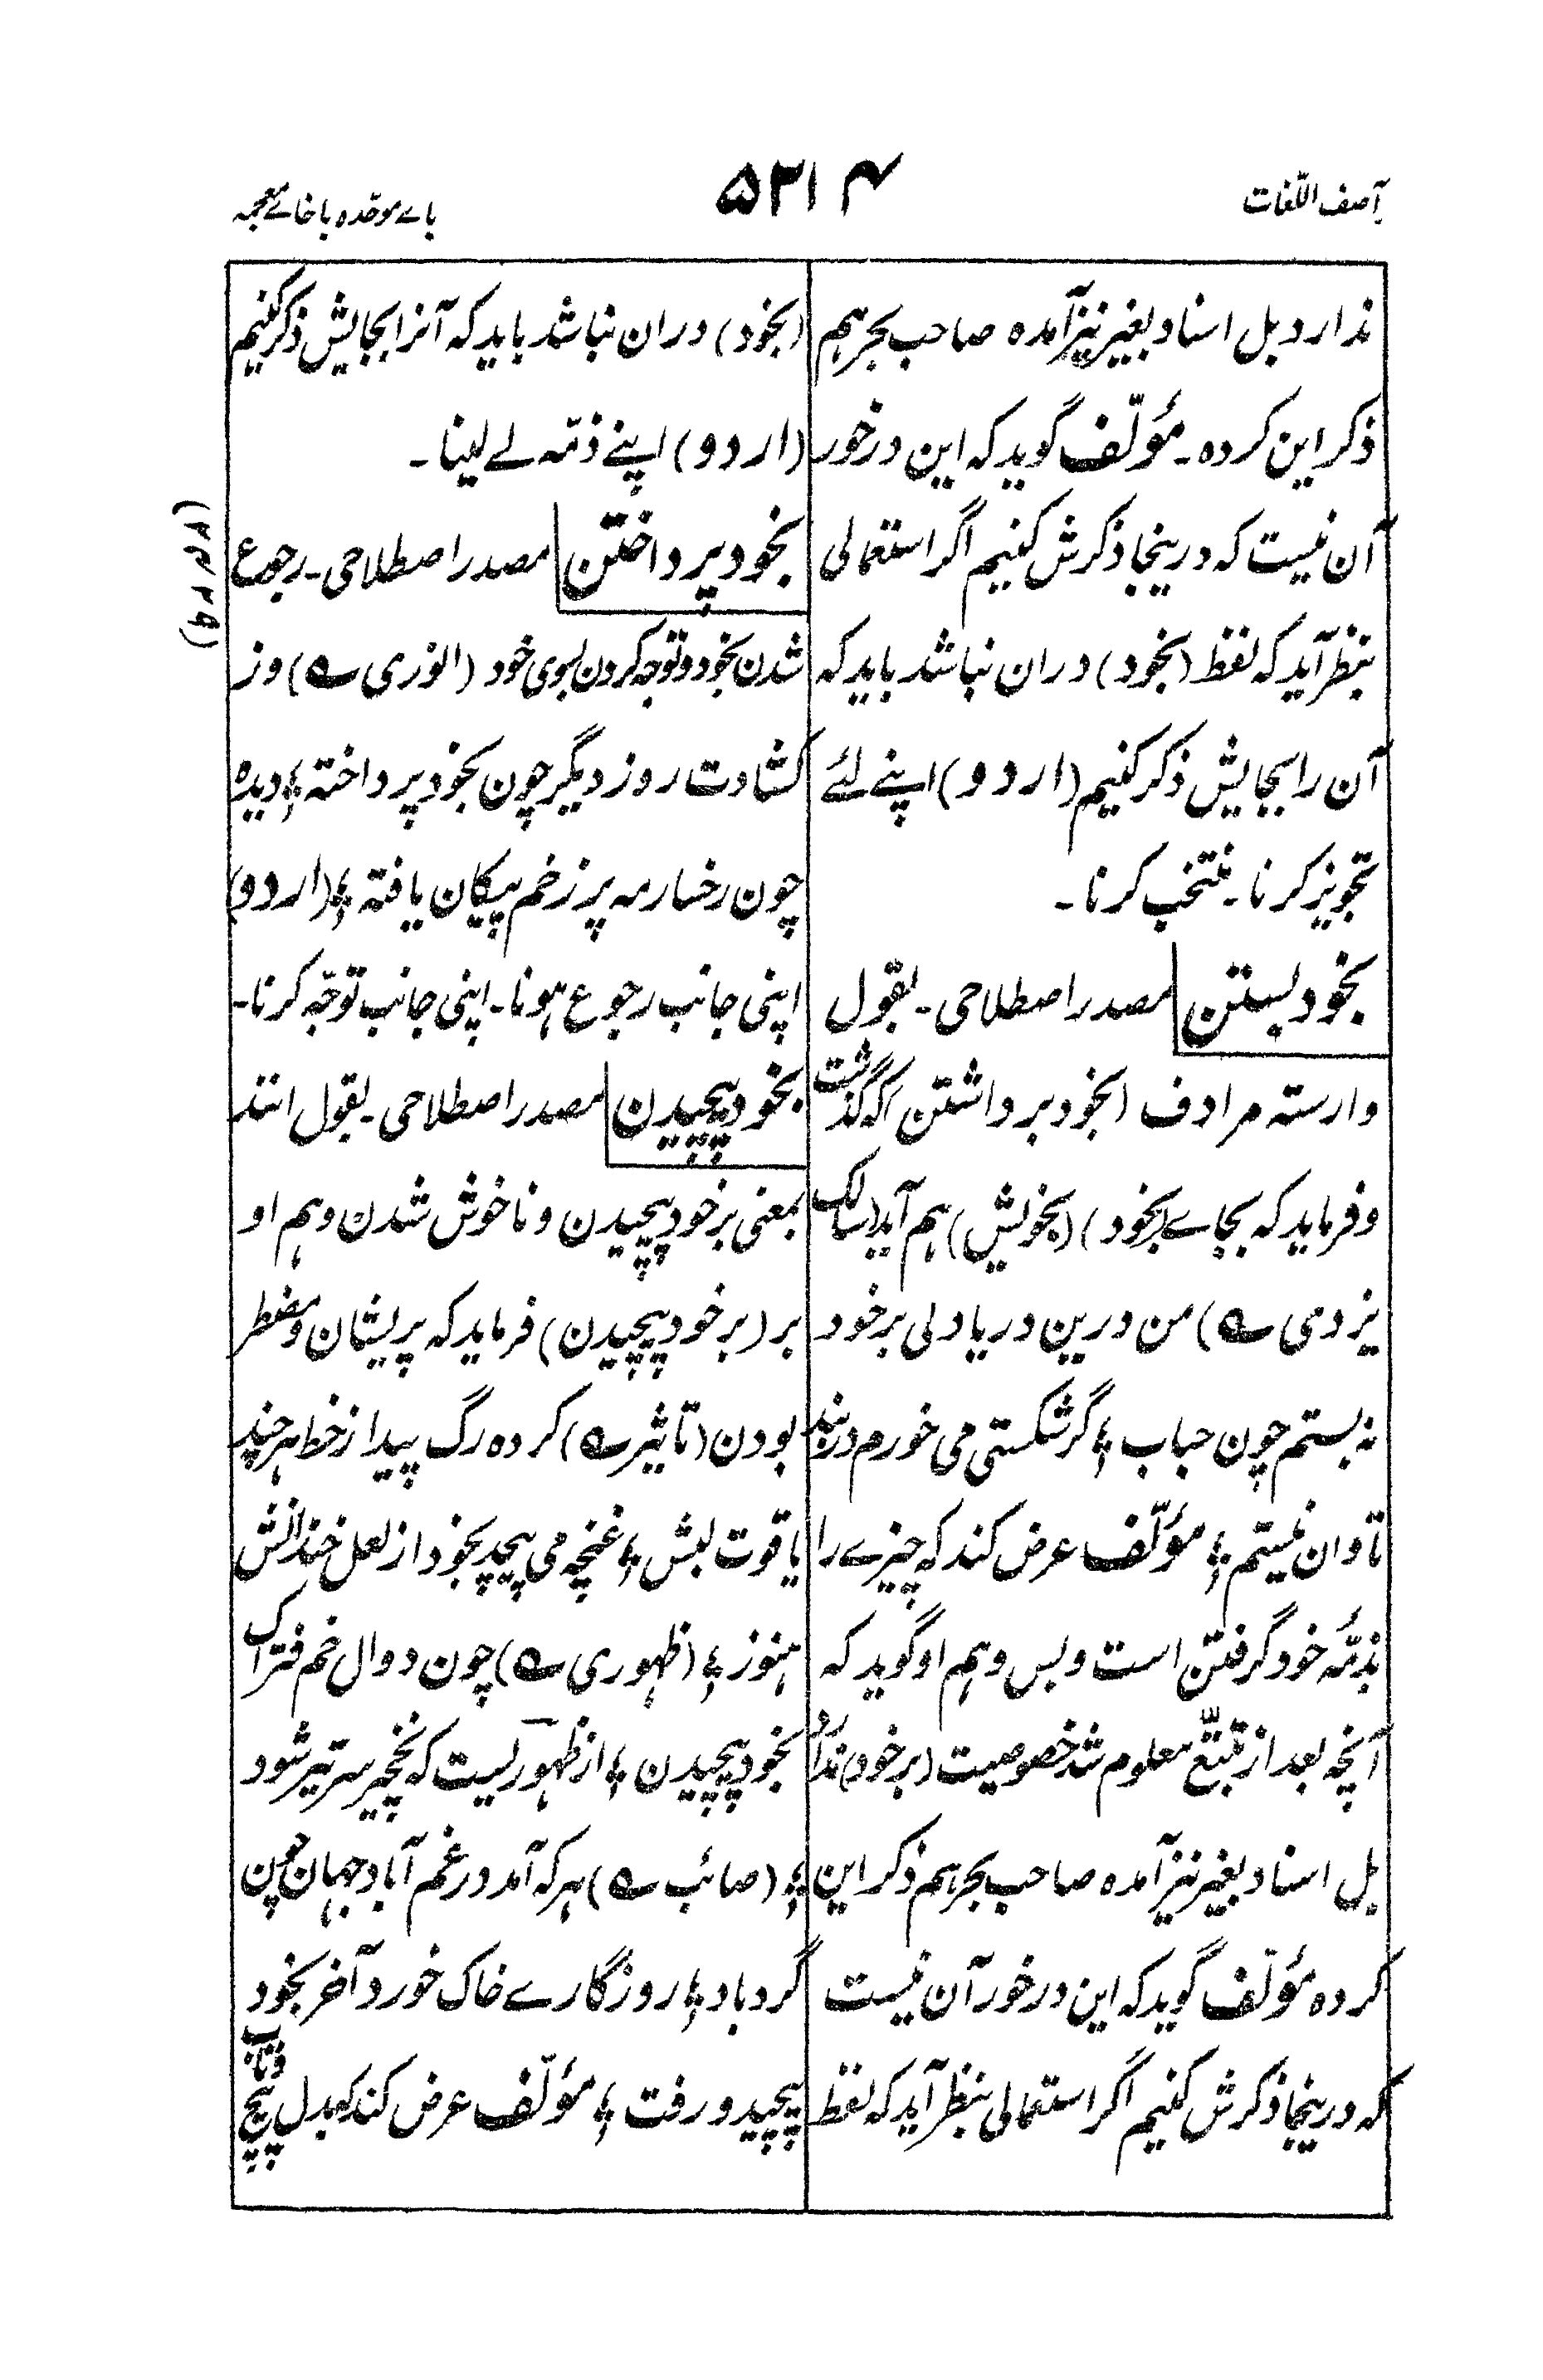 آصف اللّغات
۵۲۱۴
باے موحّدہ باخائے معجمہ
ندارد بل اسناد بغیر نیز آمدہ صاحب بحر ہم
ذکر این کردہ۔ مؤلّف گوید کہ این درخور
آن نیست کہ درینجا ذکرش کنیم اگر استعمالی
بنظر آید کہ لفظ (بخود) دران نباشد باید کہ
آن را بجایش ذکر کنیم (اردو) اپنے لئے
تجویز کرنا۔ منتخب کرنا۔
بخود بستن مصدر اصطلاحی۔ بقول
وارستہ مرادف (بخود برداشتن) کہ گذشت
و فرماید کہ بجاے (بخود) (بخویش) ہم آید (سالک
یزدمی ے) من درین دریا دلی برخود
نہ بستم چون حباب ؛ گر شکستی می خورم در بند
تاوان نیستم ؛ مؤلّف عرض کند کہ چیزے را
بذمّہ خود گرفتن است و بس و ہم او گوید کہ
آنچہ بعد از تتبّع معلوم شد خصوصیت (برخود) ندارد
بل اسناد بغیر نیز آمدہ صاحب بحر ہم ذکر این
کردہ مؤلّف گوید کہ این درخور آن نیست
کہ درینجا ذکرش کنیم اگر استعمالی بنظر آید کہ لفظ
(بخود) دران نباشد باید کہ آنرا بجایش ذکر کنیم
(اردو) اپنے ذمّہ لے لینا۔
بخود پرداختن مصدر اصطلاحی۔ رجوع
(۲۴۲۹)
شدن بخود و توجہ کردن بسوی خود (انوری ے) وز
کشادت روز دیگر چون بخود پرداختہ ؛ دیدہ
چون رخسار مہ پر زخم پیکان یافتہ ؛ (اردو)
اپنی جانب رجوع ہونا۔ اپنی جانب توجّہ کرنا۔
بخود پیچیدن مصدر اصطلاحی۔ بقول انند
بمعنی برخود پیچیدن و ناخوش شدن و ہم او
بر (برخود پیچیدن) فرماید کہ پریشان و مضطر
بودن (تاثیر ے) کردہ رگ پیدا ز خط ہر چند
یاقوت لبش ؛ غنچہ می پیچد بخود از لعل خندانش
ہنوز ؛ (ظہوری ے) چون دوال خم فتراک
بخود پیچیدن ؛ از ظہوریست کہ نخچیر سر تیر شود
؛ (صائب ے) ہر کہ آمد در غم آباد جہان چون
گردباد ؛ روزگارے خاک خورد آخر بخود
پیچید و رفت ؛ مؤلّف عرض کند کہ بدل پیچ و تاب